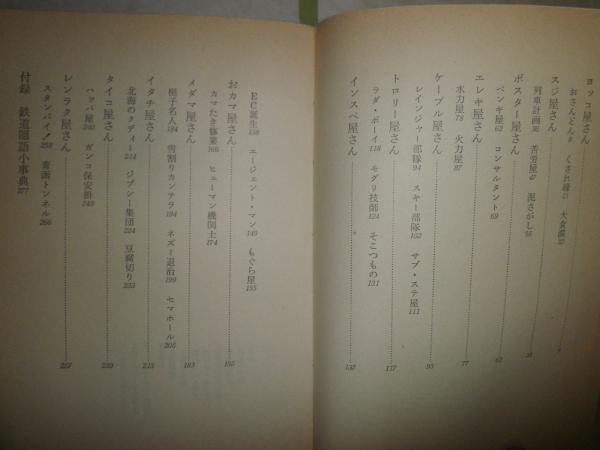 ヨッコ屋さん……7
おさんどん8 くされ縁21 大食漢25
スジ屋さん……31
列車計画36 苦労屋47 泥さがし55
ポスター屋さん……61
ペンキ屋62 コンサルタント69
エレキ屋さん……77
水力屋78 火力屋87
ケーブル屋さん……93
レインジャー部隊94 スキー部隊102 サブ・ステ屋111
トロリー屋さん……117
ラダ・ボーイ118 モグリ技師124 そこつもの131
インスペ屋さん……137
EC誕生138 エージェント・マン149 もぐら屋155
おカマ屋さん……165
カマたき稼業166 ヒューマン機関士174
メダマ屋さん……183
梃子名人184 雪割りカンテラ194 ネズミ退治199 セマホール205
イタチ屋さん……213
北海のクディー214 ジプシー集団224 豆腐切り233
タイコ屋さん……239
ハッパ屋240 ガンコ保安掛248
レンラク屋さん……257
スタンバイ!258 青函トンネル266
付録 鉄道隠語小事典277